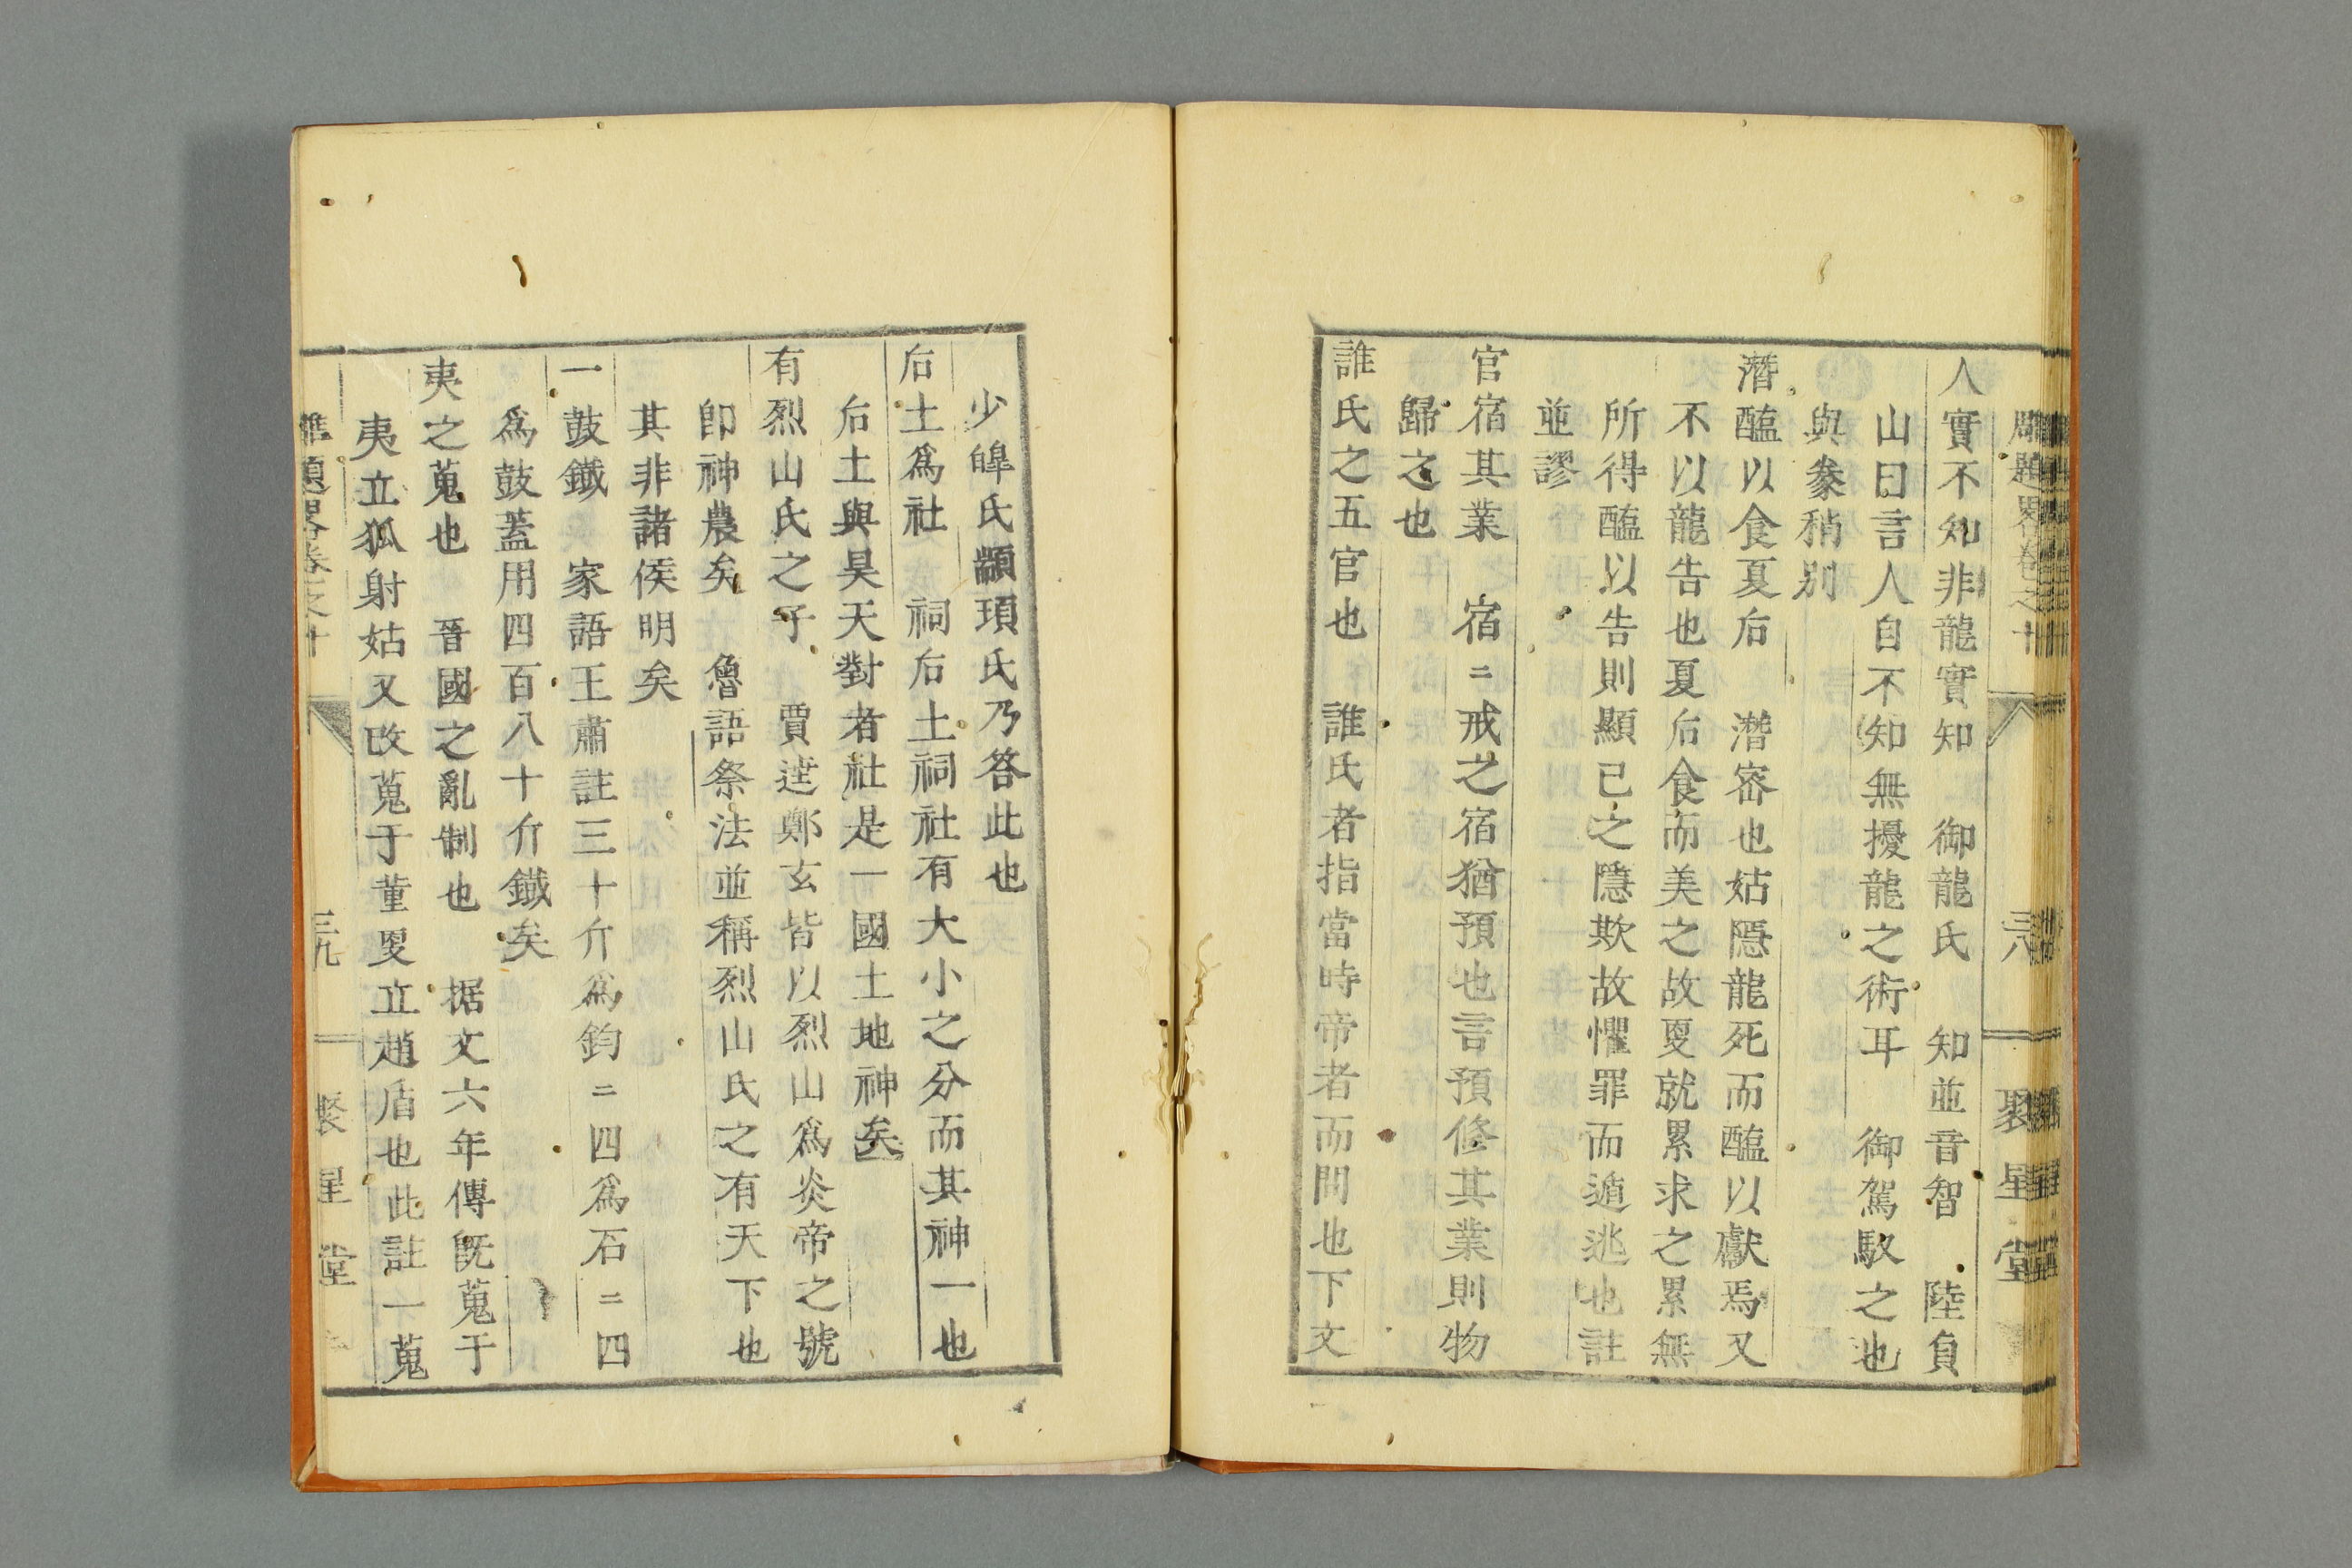 雕題畧卷之十 三八 聚星堂
人實不知非龍實知 御龍氏 知並音智 陸負
山曰言人自不知無擾龍之術耳 御駕馭之也
與豢稍别
潛醢以食夏后 潛宻也姑隱龍死而醢以獻焉又
不以龍告也夏后食而美之故夏就累求之累無
所得醢以告則顯已之隱欺故懼罪而遁逃也註
並謬
官宿其業 宿〻戒之宿猶預也言預修其業則物
歸之也
誰氏之五官也 誰氏者指當時帝者而問也下文
少皞氏顓頊氏乃答此也
后土爲社 祠后土祠社有大小之分而其神一也
后土與昊天對者社是一國土地神矣
有烈山氏之子 賈逵鄭玄皆以烈山爲炎帝之號
卽神農矣 魯語祭法並稱烈山氏之有天下也
其非諸侯明矣
一鼓鐵 家語王肅註三十斤爲鈞〻四爲石〻四
爲鼓蓋用四百八十斤鐵矣
夷之蒐也 晉國之亂制也 据文六年傳旣蒐于
夷立狐射姑又改蒐于董更立趙盾也此註一蒐
雕題畧卷之十 三九 聚星堂